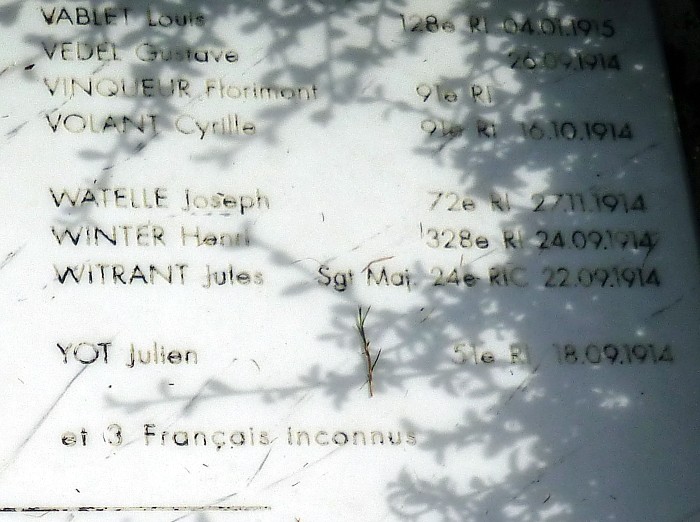 VABLET Louis 128e RI 04.01.1915
VEDEL Gustave 26.09.1914
VINQUEUR Florimont 91e RI
VOLANT Cyrille 91e RI 16.10.1914
WATELLE Joseph 72e RI 27.11.1914
WINTER Henri 328e RI 24.09.1914
WITRANT Jules Sgt Maj. 24e RIC 22.09.1914
YOT Julien 51e RI 18.09.1914
et 3 Français inconnus